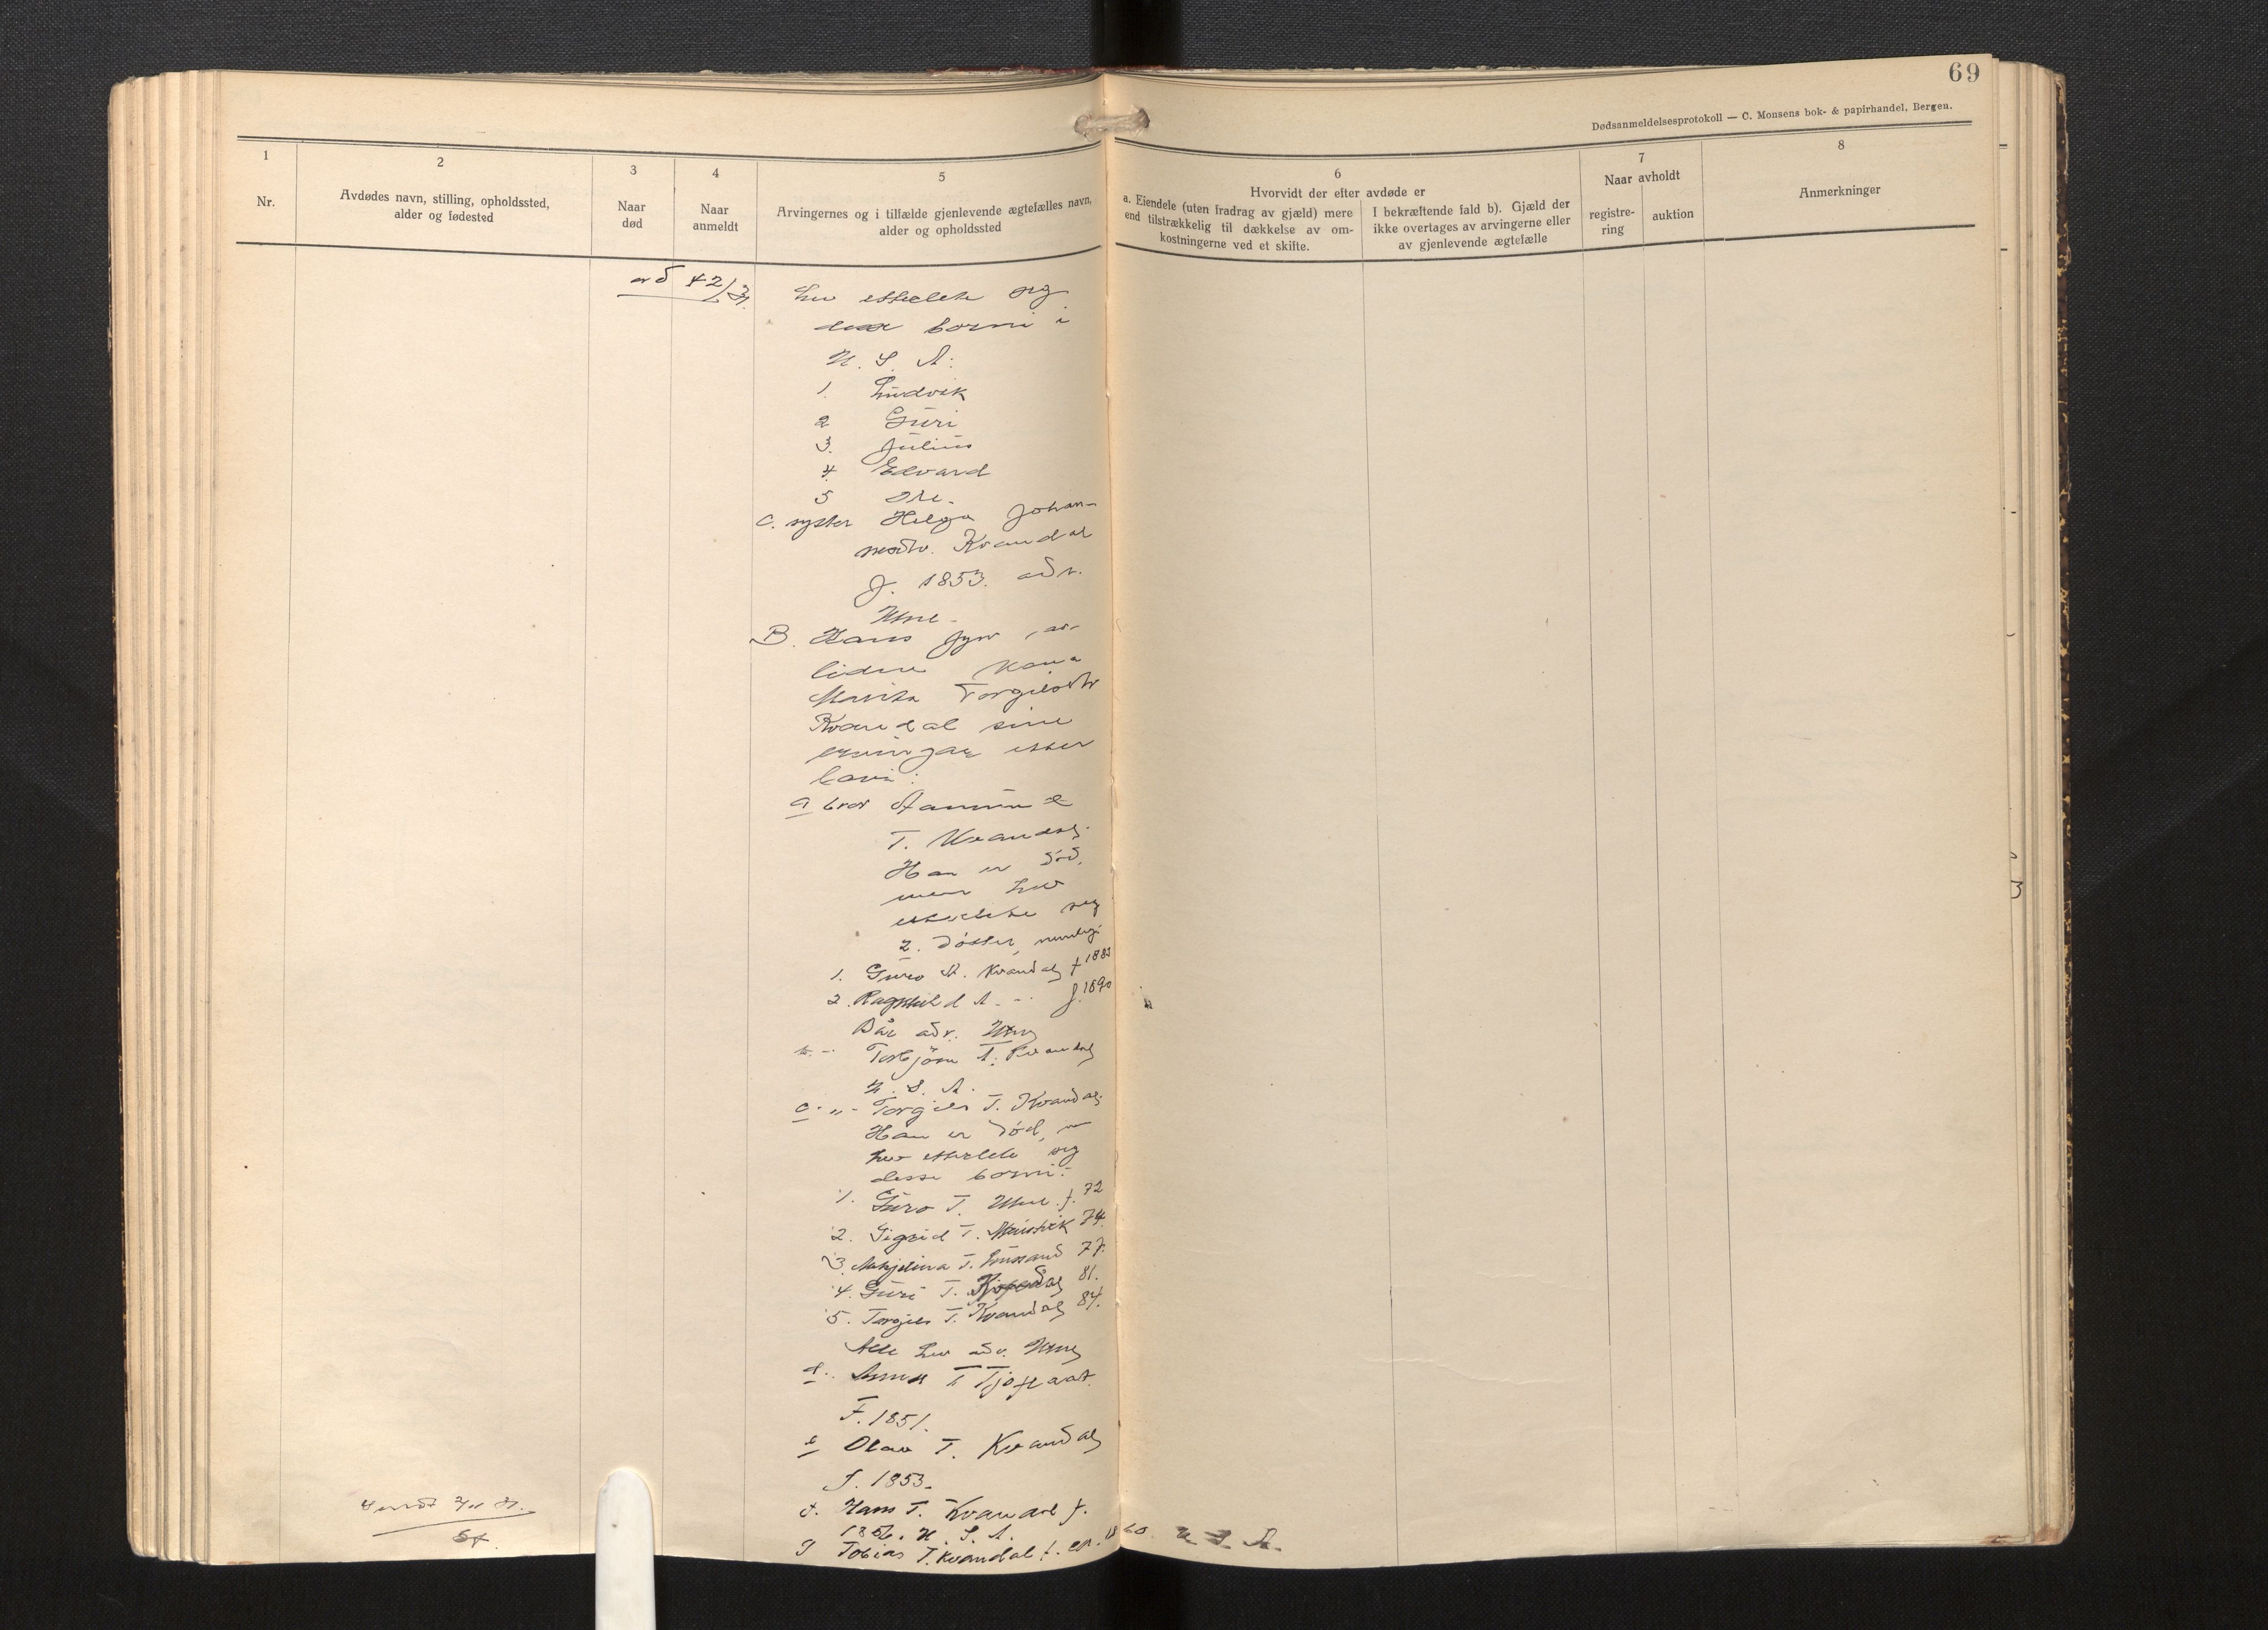 69
Dødsanmeldelsesprotokoll — C. Monsens bok- & papirhandel, Bergen.
1
2
3
4
5
6
7
8
Nr.
Avdødes navn, stilling, opholdssted,
alder og fødested
Naar
død
Naar
anmeldt
Arvingernes og i tilfælde gjenlevende ægtefælles navn,
alder og opholdssted
Hvorvidt der efter avdøde er
a. Eiendele (uten fradrag av gjæld) mere
end tilstrækkelig til dækkelse av om-
kostningerne ved et skifte.
I bekræftende fald b). Gjæld der
ikke overtages av arvingerne eller
av gjenlevende ægtefælle
Naar avholdt
registre-
ring
auktion
Anmerkninger
42/31.
hev etterlete seg
borni i
U. S. A.
1. Ludvik
2 Guri
3. Julius
4 Edvard
5 Ole.
C. syster Helga Johan-
nesdtr. Kvandal
f. 1853. adr.
Utne.
B. Hans fyrr av-
lidne kona
Marita Torgilsdtr
Kvandal sine
ervingar etter
lovi:
a bror Aamund
T. Kvandal.
Han er død,
men hev
etterlete seg
2. døtter, nemleg:
1. Guro A. Kvandal f 1883
2. Ragnhild A. - f. 1890
Båe adr. Utne
b. - Torbjörn T. Kvandal
U. S. A.
c. „ - Torgils T. Kvandal.
Han er død,
hev etterlete seg
desse borni:
1. Guro T. Utne f. 72
2. Sigrid T. 74.
3. T. 77.
4. Guri T. 81.
5. Torgils T. Kvandal 84.
Alle hev adr. Utne
d. Anna T Tjoflaat
F. 1851.
e Olav T. Kvandal
f. 1853.
f. Hans T. Kvandal f.
1856. U. S. A.
g Tobias T. Kvandal f. ca. 1860. U. S. A.